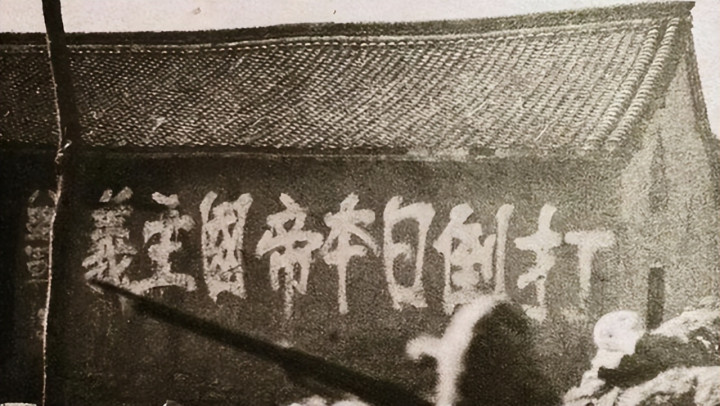 打倒日本帝國主義